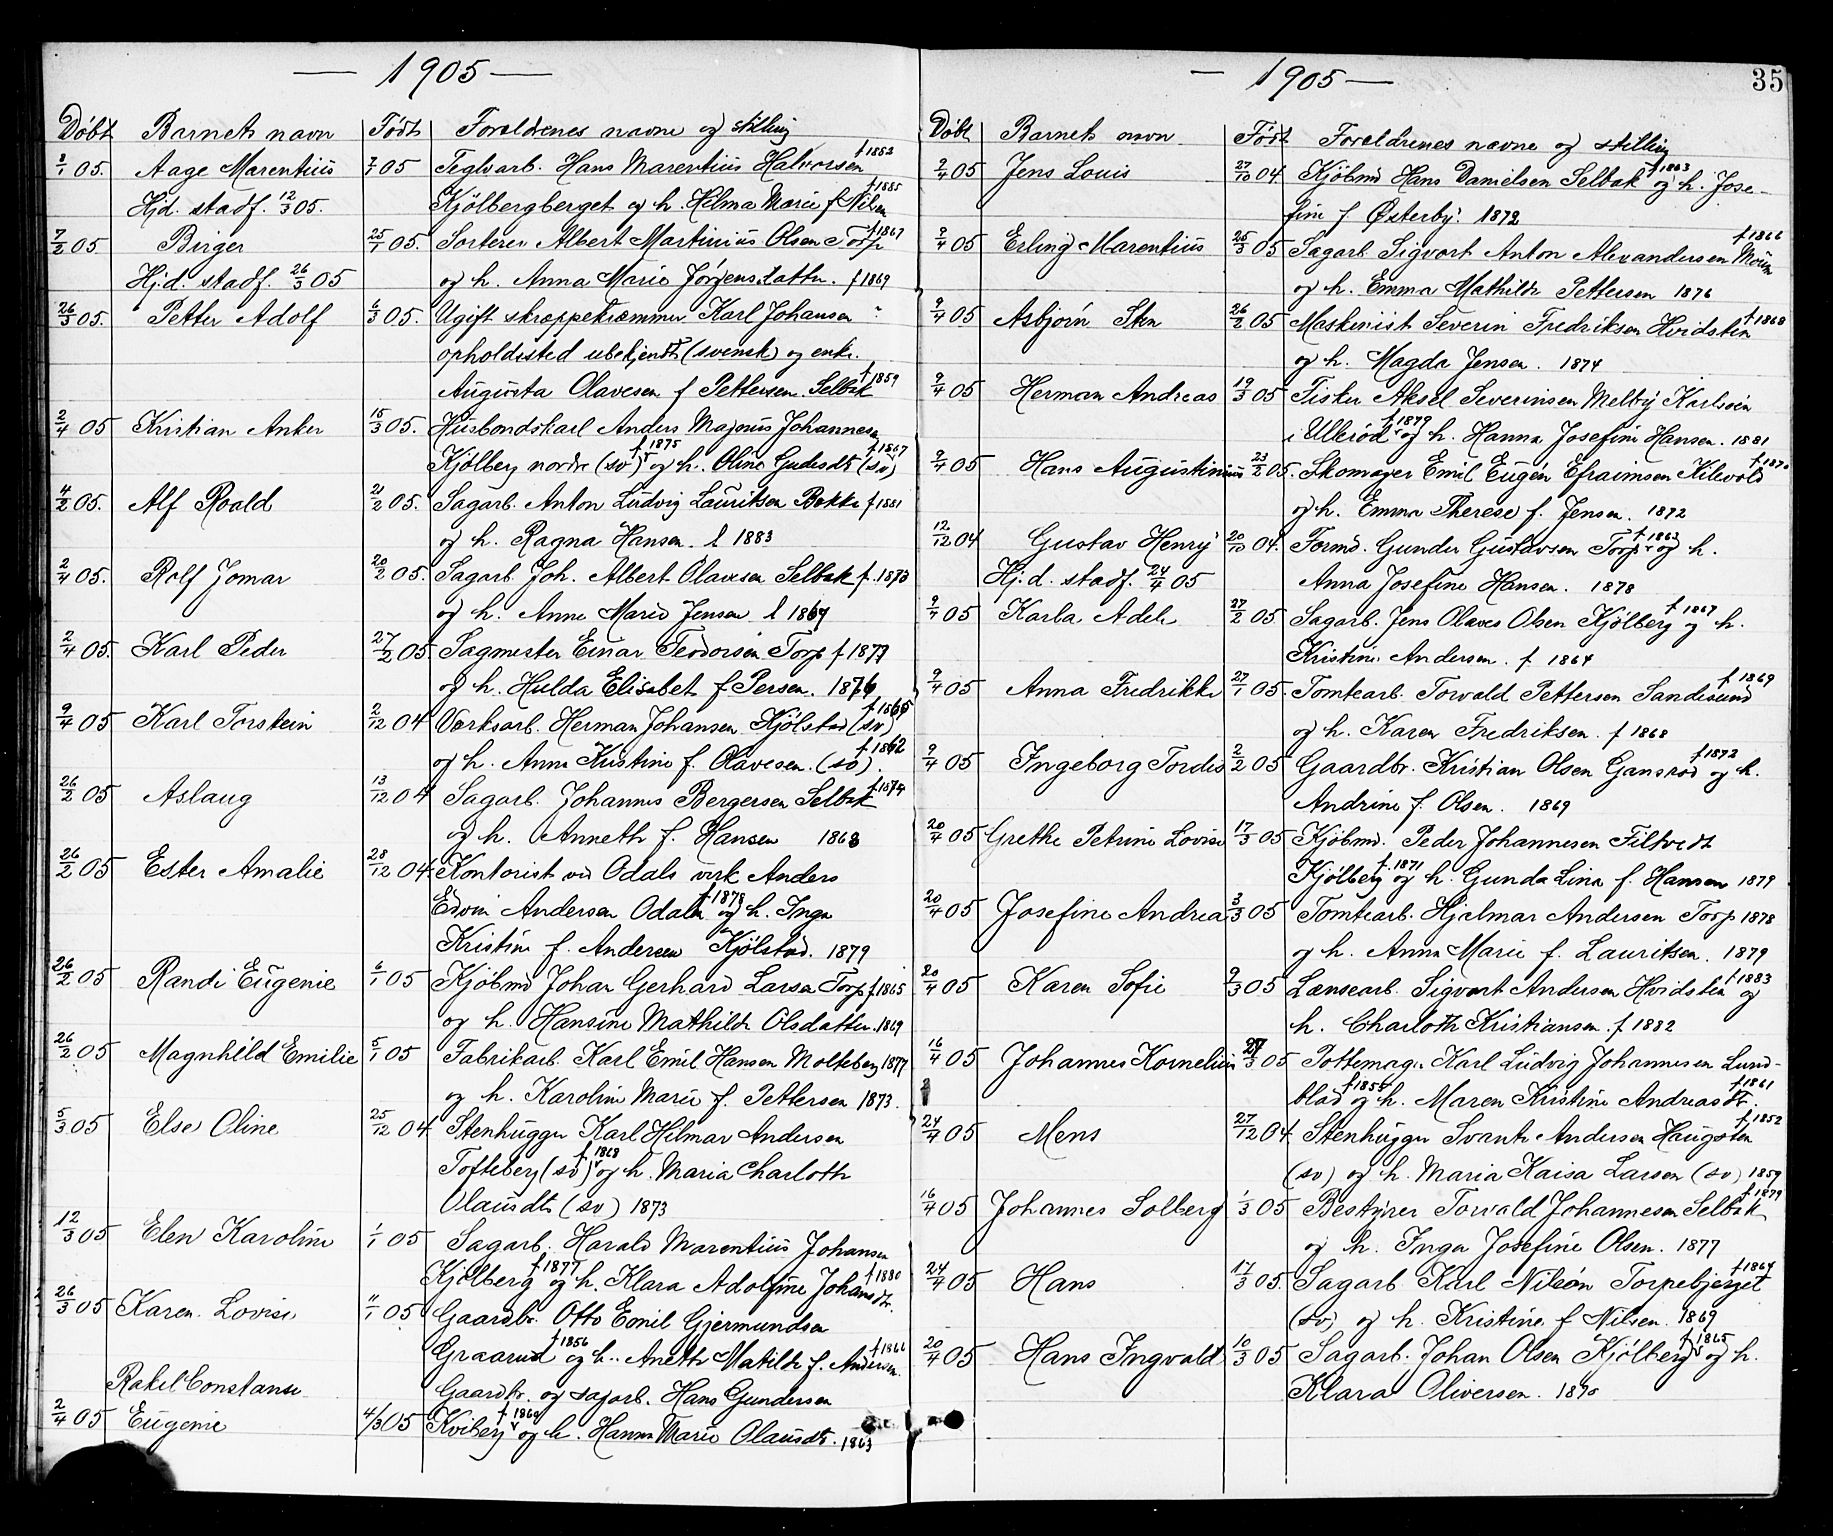 — 1905 —
Døbt Barnets navn Født Foreldrenes navne og stilling
8/1 05. Aage Marentius 7/1 05 Teglarb. Hans Marentius Halvorsen f 1852
Hjd. stadf. 12/3 05. Kjölbergberget og h. Helma Marie f Nilsen f 1885
7/2 05 Birger 25/1 05. Sorterer Albert Martinius Olsen Torp f 1867
Hjd. stadf. 26/3 05 og h. Anna Marie Jørgensdatter. f 1869
26/3 05. Petter Adolf 6/3 05. Ugift skræppekræmmer Karl Johansen
opholdssted ubekjendt (svensk) og enke
Augusta Olavesen f Pettersen. Selbak f 1859
2/4 05 Kristian Anker 15/3 05. Husbondskarl Anders Magnus Johannesen
Kjölberg nordre (sv) f 1875 og h. Oline Gudesdt (sv) f 1867
4/2 05. Alf Roald 21/2 05. Sagarb. Anton Ludvig Lauritsen Bakke f 1881
og h. Ragna Hansen. f 1883
2/4 05. Rolf Jomar 20/2 05. Sagarb. Joh. Albert Olavesen Selbak f. 1873
og h. Anne Marie Jensen f 1869
2/4 05. Karl Peder 27/2 05. Sagmester Einar Teodorsen Torp f 1877
og h. Hulda Elisabet f. Persen. 1876
9/4 05 Karl Torstein 2/12 04 Værksarb. Herman Johansen Kjölstad (sv) f 1865
og h. Anna Kristine f. Olavesen. (sv). f 1862
26/2 05 Aslaug 13/12 04 Sagarb. Johannes Bergersen Selbak f 1874
og h. Anneth f. Hansen 1868
26/2 05 Ester Amalie 28/12 04. Kontorist ved Odals verk Anders
Edvin Andersen Odalen f 1878 og h. Inga
Kristine f. Andersen Kjölstad. 1879
26/2 05 Randi Eugenie 6/1 05 Kjöbmd Johan Gerhard Larsen Torp f. 1865
og h. Hansine Mathilde Olsdatter. 1869
26/2 05 Magnhild Emilie 5/1 05 Fabrikarb. Karl Emil Hansen Molteberg 1877
og h. Karoline Marie f. Pettersen 1873.
5/3 05 Else Oline 25/12 04 Stenhugger Karl Hilmar Andersen
Tofteberg (sv) f 1868 og h. Maria Charloth
Olausdt (sv) 1873
12/3 05 Elen Karoline 1/1 05 Sagarb. Harald Marentius Johansen
Kjölberg f 1877 og h. Klara Adolfine Johansdtr. f 1880
26/3 05 Karen Lovise 11/1 05 Gaardbr. Otto Emil Gjermundsen
Graarud f 1856 og h. Aneth Matilde f. Andersen. f 1866
Rakel Constanse Gaardbr. og sagarb. Hans Gundersen
2/4 05 Eugenie 4/3 05 Kviberg f 1860 og h. Hanna Marie Olausdt. 1863
— 1905 — 35
Døbt Barnets navn Født Foreldrenes navne og stilling
2/4 05 Jens Louis 27/10 04 Kjöbmd Hans Danielsen Selbak f 1863 og h. Jose-
fine f Østerby. 1872
9/4 05 Erling Marentius 25/3 05 Sagarb. Sigvart Anton Alexandersen Moum f 1866
og h. Emma Mathilde Pettersen 1876
9/4 05 Asbjørn Sten 26/2 05 Maskinist Severin Fredriksen Hvidsten f 1868
og h. Magda Jensen. 1874
9/4 05 Herman Andreas 19/3 05 Fisker Aksel Severinsen Melby Karlsöen
i Ullerød f 1879 og h. Hanna Josefine Hansen. 1881
9/4 05 Hans Augustinius 23/2 05. Skomager Emil Eugén Efraimsen Kilevold f 1870
og h. Emma Therese f. Jensen. 1872
12/12 04 Gustav Henry 20/10 04. Formd. Gunder Gustavsen Torp f 1863 og h.
Hj.d. stadf. 24/4 05 Anna Josefine Hansen. 1878
9/4 05 Karla Adele 27/2 05 Sagarb. Jens Olaves Olsen Kjølberg f 1867 og h.
Kristine Andersen. f 1864
9/4 05 Anna Fredrikke 27/1 05. Tomtearb. Torvald Pettersen Sandesund f 1869
og h. Karen Fredriksen. f 1868
9/4 05 Ingeborg Tordis 2/2 05 Gaardbr. Kristian Olsen Gansrød f 1872 og h.
Andrine f. Olsen. 1869
20/4 05 Grethe Petrine Lovise 17/3 05 Kjöbmd. Peder Johannesen Filtvedt
Kjølberg f 1871 og h. Gunda Lina f. Hansen 1879
20/4 05 Josefine Andrea 3/3 05 Tomtearb. Hjalmar Andersen Torp 1878
og h. Anna Marie f. Lauritsen. 1879
20/4 05 Karen Sofie 9/3 05 Lænsearb. Sigvart Andersen Hvidsten f 1883 og
h. Charloth Kristiansen. f 1882
16/4 05 Johannes Kornelius 27/3 05 Pottemager Karl Ludvig Johannesen Lund-
blad f 1855 og h. Maren Kristine Andreasdt. f 1861
24/4 05 Mens 27/12 04 Stenhugger Svante Andersen Haugsten f 1852
(sv) og h. Maria Kaisa Larsen (sv) 1859
16/4 05 Johannes Solberg 1/3 05 Bestyrer Torvald Johannesen Selbak f 1879
og h. Inga Josefine Olsen. 1877
24/4 05 Hans 17/3 05. Sagarb. Karl Nilsén Torpebjerget f 1864
(sv) og h. Kristine f Nilsen. 1869
20/4 05 Hans Ingvald 10/3 05 Sagarb. Johan Olsen Kjölberg f 1865 og h.
Klara Oliversen. 1870